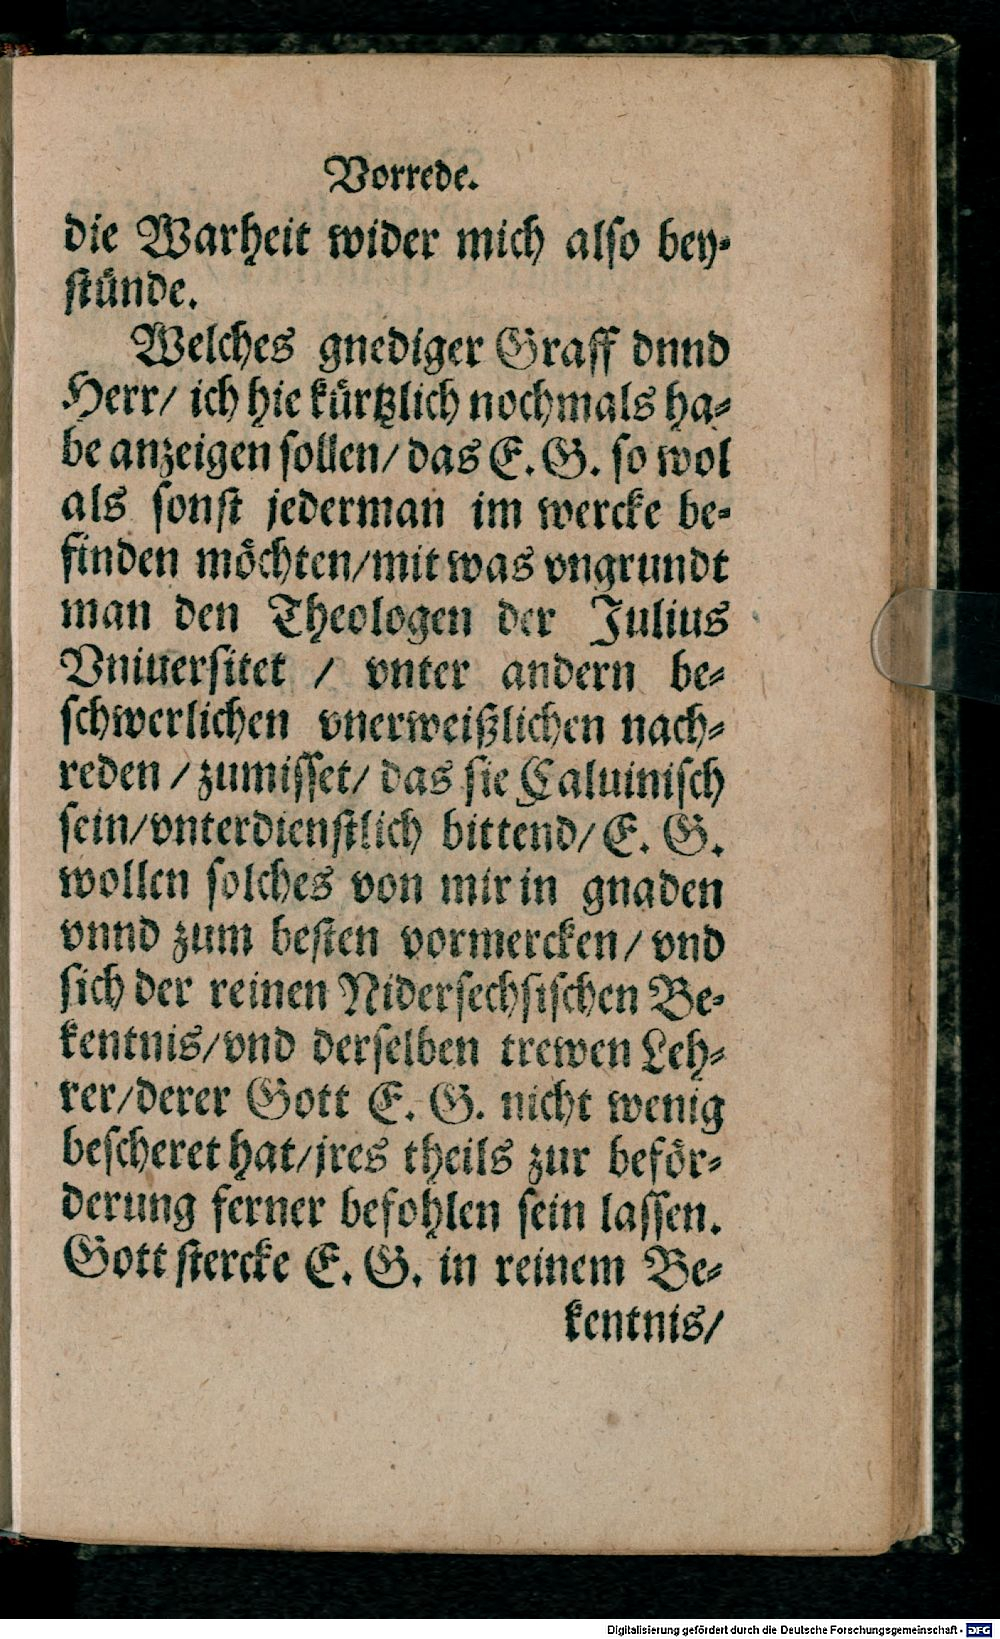 Vorrede.
die Warheit wider mich also bey-
stünde.
Welches gnediger Graff dnnd
Herr/ ich hie kürtzlich nochmals ha-
be anzeigen sollen/ das E. G. so wol
als sonst jederman im wercke be-
finden möchten/mit was vngrundt
man den Theologen der Julius
Vniuersitet / vnter andern be-
schwerlichen vnerweißlichen nach-
reden / zumisset/ das sie Caluinisch
sein/vnterdienstlich bittend/ E. G.
wollen solches von mir in gnaden
vnnd zum besten vormercken/ vnd
sich der reinen Nidersechsischen Be-
kentnis/vnd derselben trewen Leh-
rer/derer Gott E. G. nicht wenig
bescheret hat/jres theils zur beför-
derung ferner befohlen sein lassen.
Gott stercke E. G. in reinem Be-
kentnis/
Digitalisierung gefördert durch die Deutsche Forschungsgemeinschaft - DFG